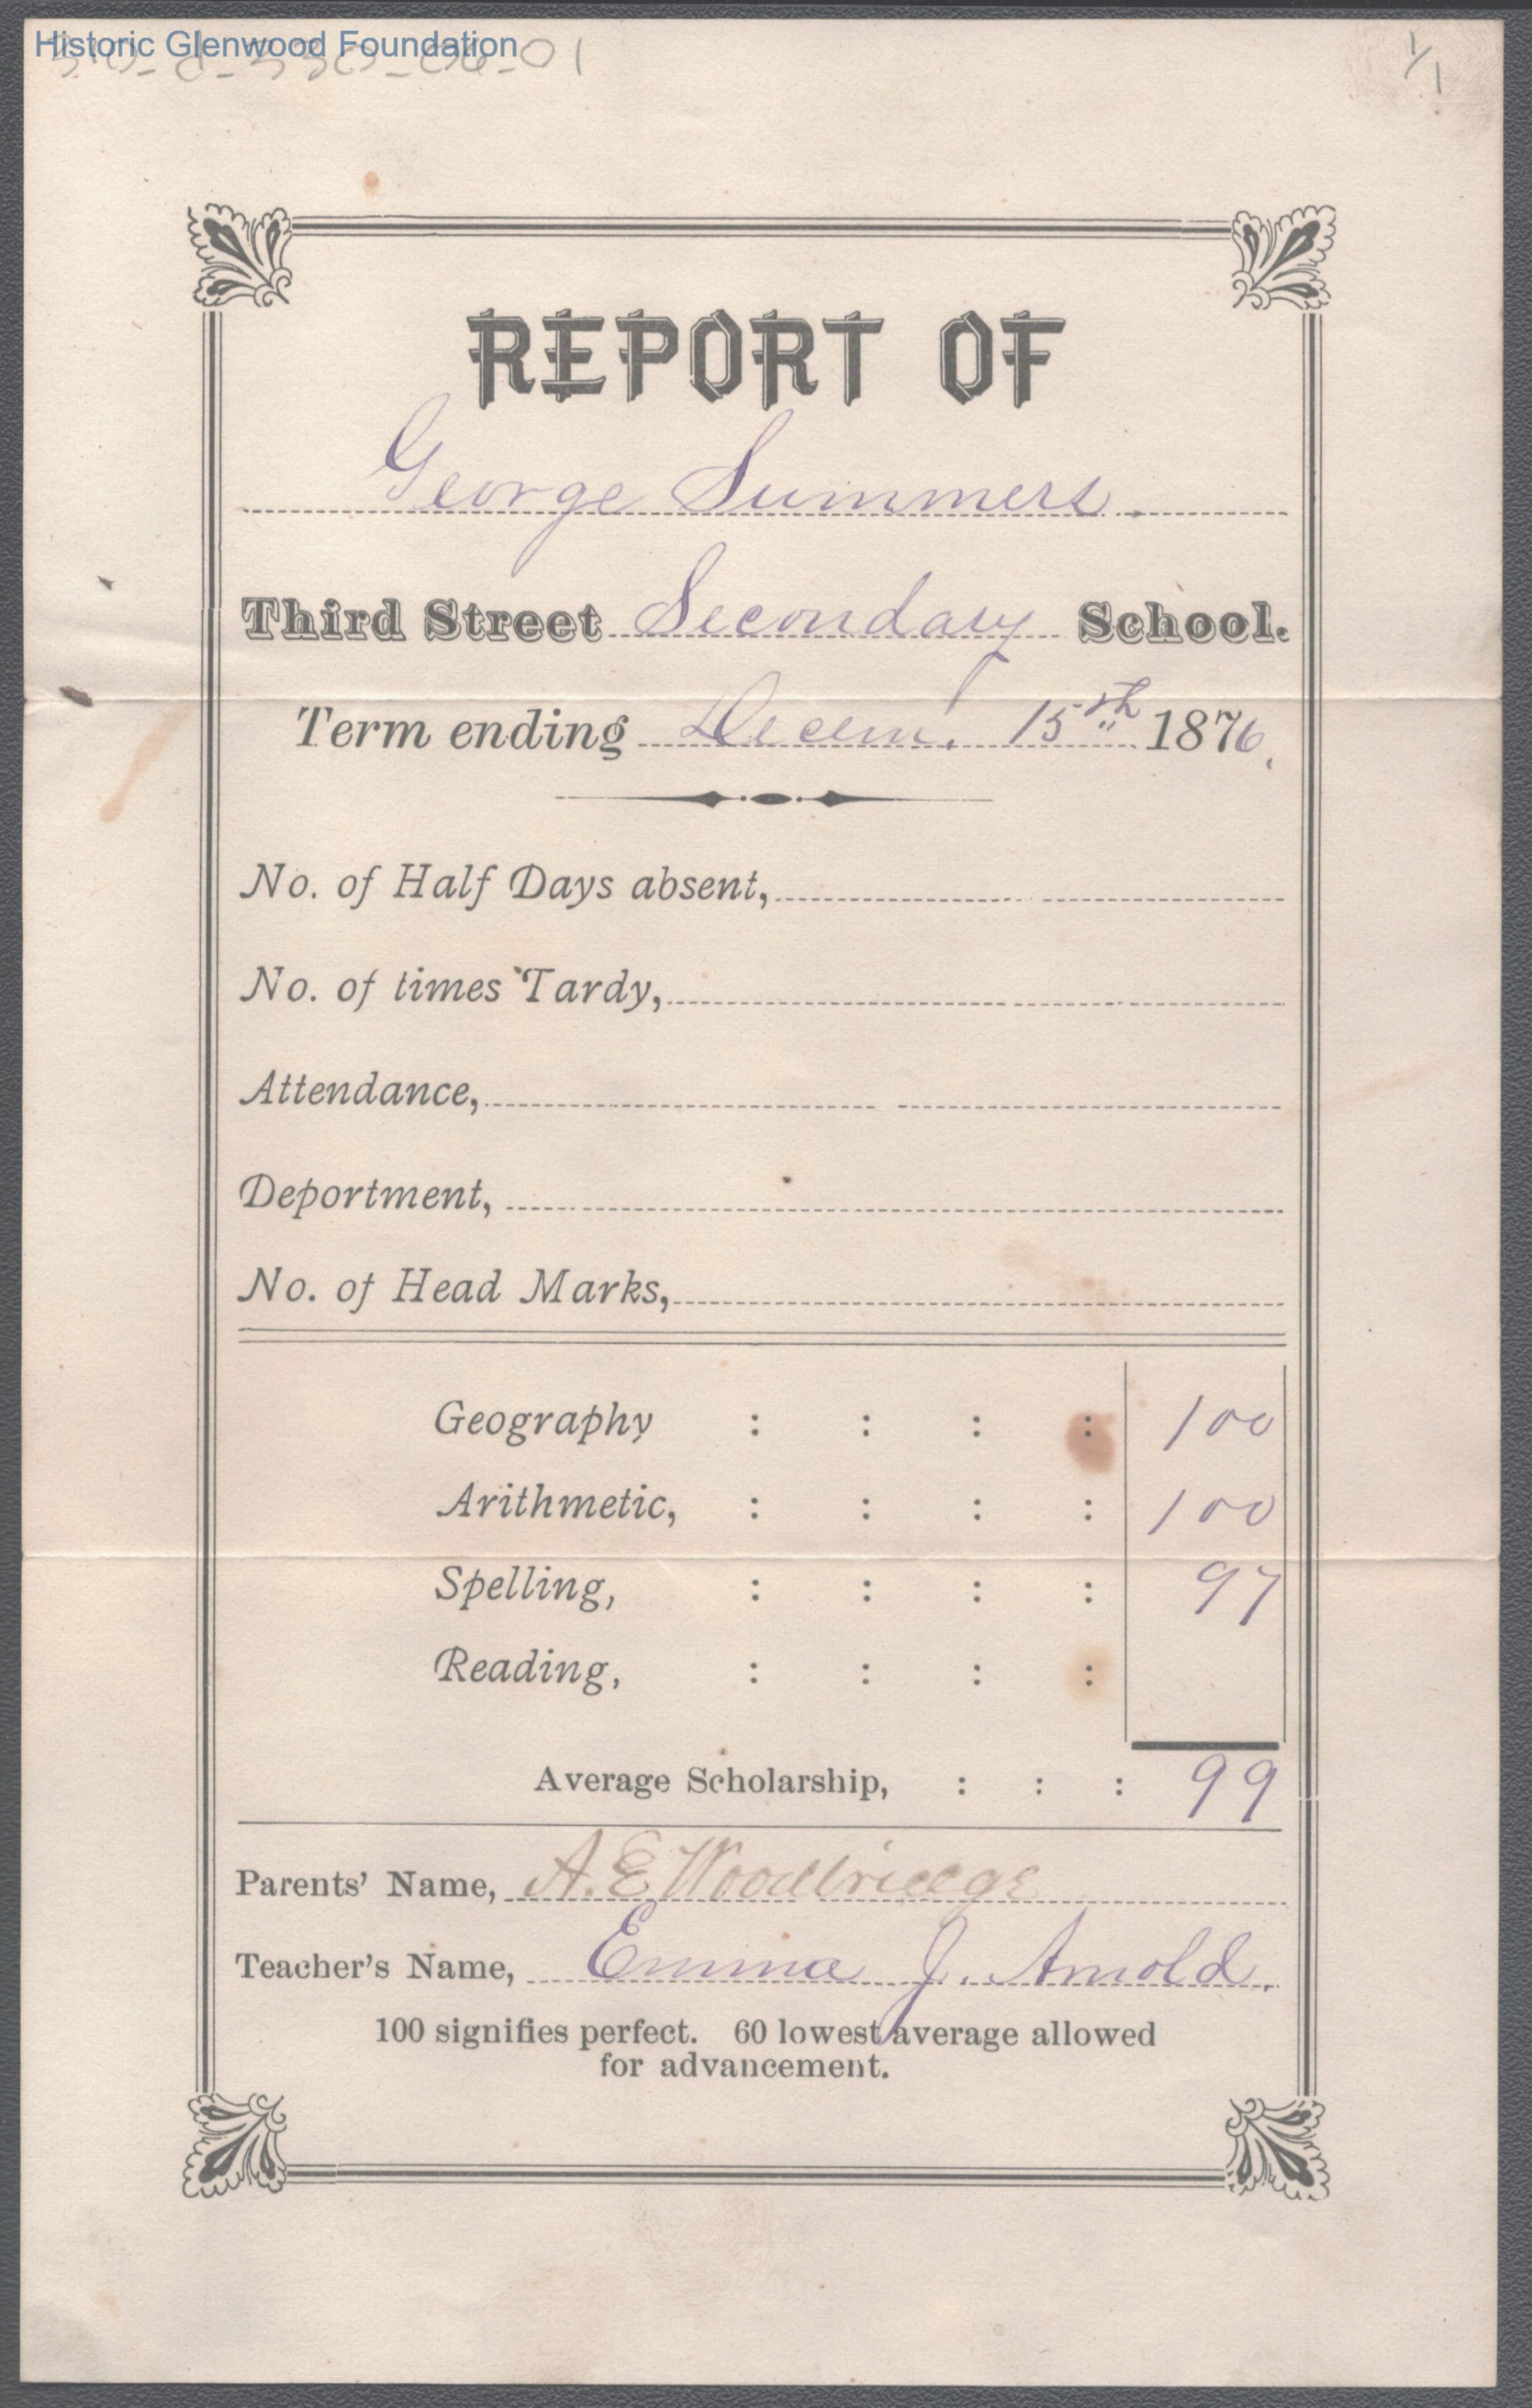 Historic Glenwood Foundation
1/1
REPORT OF
George Summers.
Third Street Secondary School.
Term ending Decem. 15th 1876.
No. of Half Days absent,
No. of times Tardy,
Attendance,
Deportment,
No. of Head Marks,
Geography : : : : 100
Arithmetic, : : : : 100
Spelling, : : : : 97
Reading, : : : :
Average Scholarship, : : : 99
Parents' Name, A. E. Woodbridge
Teacher's Name, Emma J. Arnold.
100 signifies perfect. 60 lowest average allowed
for advancement.